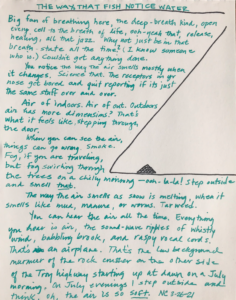 THE WAY THAT FISH NOTICE WATER
Big fan of breathing here, the deep-breath kind, open
every cell to the breath of life, ooh-yeah that, release,
healing, all that jazz. Why not just be in that
breath state all the time? (I know someone
who is.) Couldn't get anything done.
You notice the way the air smells mostly when
it changes. Science that. The receptors in yr
nose get bored and quit reporting if it's just
the same stuff over and over.
Air of indoors. Air of out. Outdoors
air has more dimensions? That's
what it feels like stepping through
the door.
When you can see the air,
things can go wrong. Smoke.
Fog, if you are traveling,
but fog swirling through
the trees on a chilly morning—ooh-la-la! Step outside
and smell that.
The way the air smells as snow is melting, when it
smells like mud, manure, or worms. Torrid.
You can hear the air all the time. Everything
you hear is air, the sound-wave ripples of whistly
wind, babbling brook, and raspy road cord.
That's an airplane. That's the low background
murmur of the rock crusher on the other side
of the Troy highway starting up at dawn on a July
morning. In July evenings I step outside and
think, oh, the air is so soft.